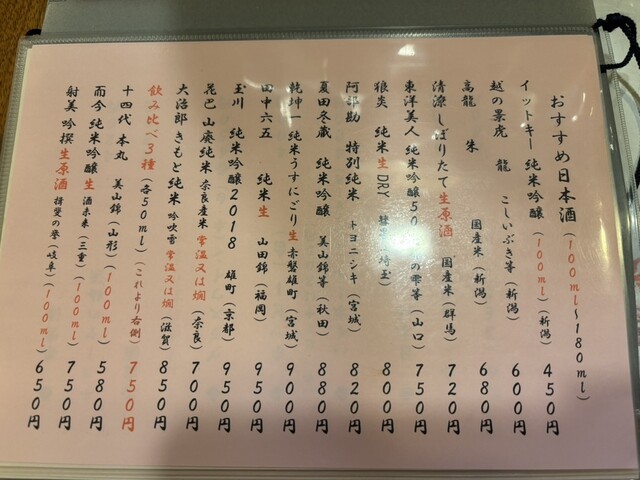 おすすめ日本酒（100ml〜180ml）
イットキー 純米吟醸（100ml）（新潟）450円
越の景虎 龍 こしいぶき等（新潟）600円
高龍 朱 国産米（新潟）680円
清源 しぼりたて生原酒 国産米（群馬）720円
東洋美人 純米吟醸50 の雫等（山口）750円
狼炎 純米生DRY 埼玉）800円
阿部勘 特別純米 トヨニシキ（宮城）820円
夏田冬蔵 純米吟醸 美山錦等（秋田）880円
乾坤一 純米うすにごり生 赤磐雄町（宮城）900円
田中六五 純米生 山田錦（福岡）950円
玉川 純米吟醸2018 雄町（京都）950円
花巴 山廃純米 奈良産米 常温又は燗（奈良）700円
大治郎 きもと純米 吟吹雪 常温又は燗（滋賀）850円
飲み比べ3種（各50ml）（これより右側）750円
十四代 本丸 美山錦（山形）（100ml）580円
而今 純米吟醸生 酒未来（三重）（100ml）750円
射美 吟撰生原酒 揖斐の誉（岐阜）（100ml）650円